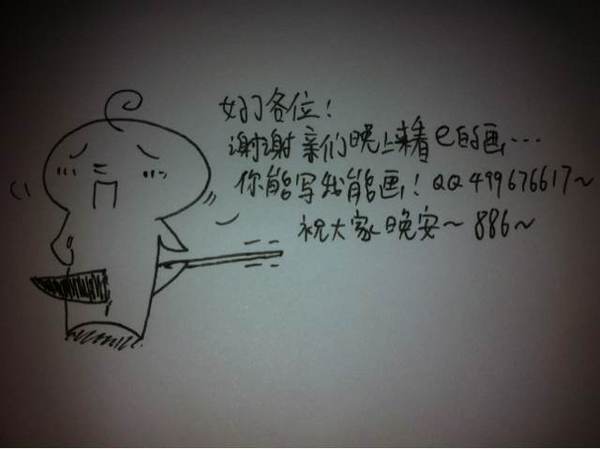 好了各位！
谢谢亲们晚上来看e的画…
你能写我能画！QQ499676617~
祝大家晚安~886~